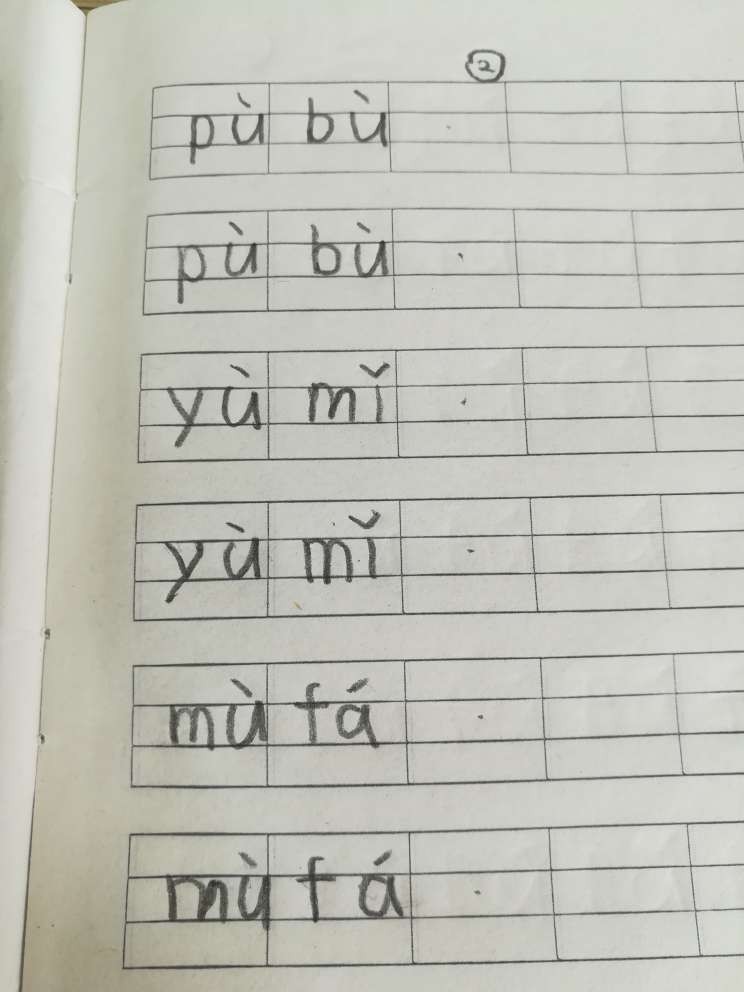 ②
pù bù
pù bù
yù mǐ
yù mǐ
mù fá
mù fá